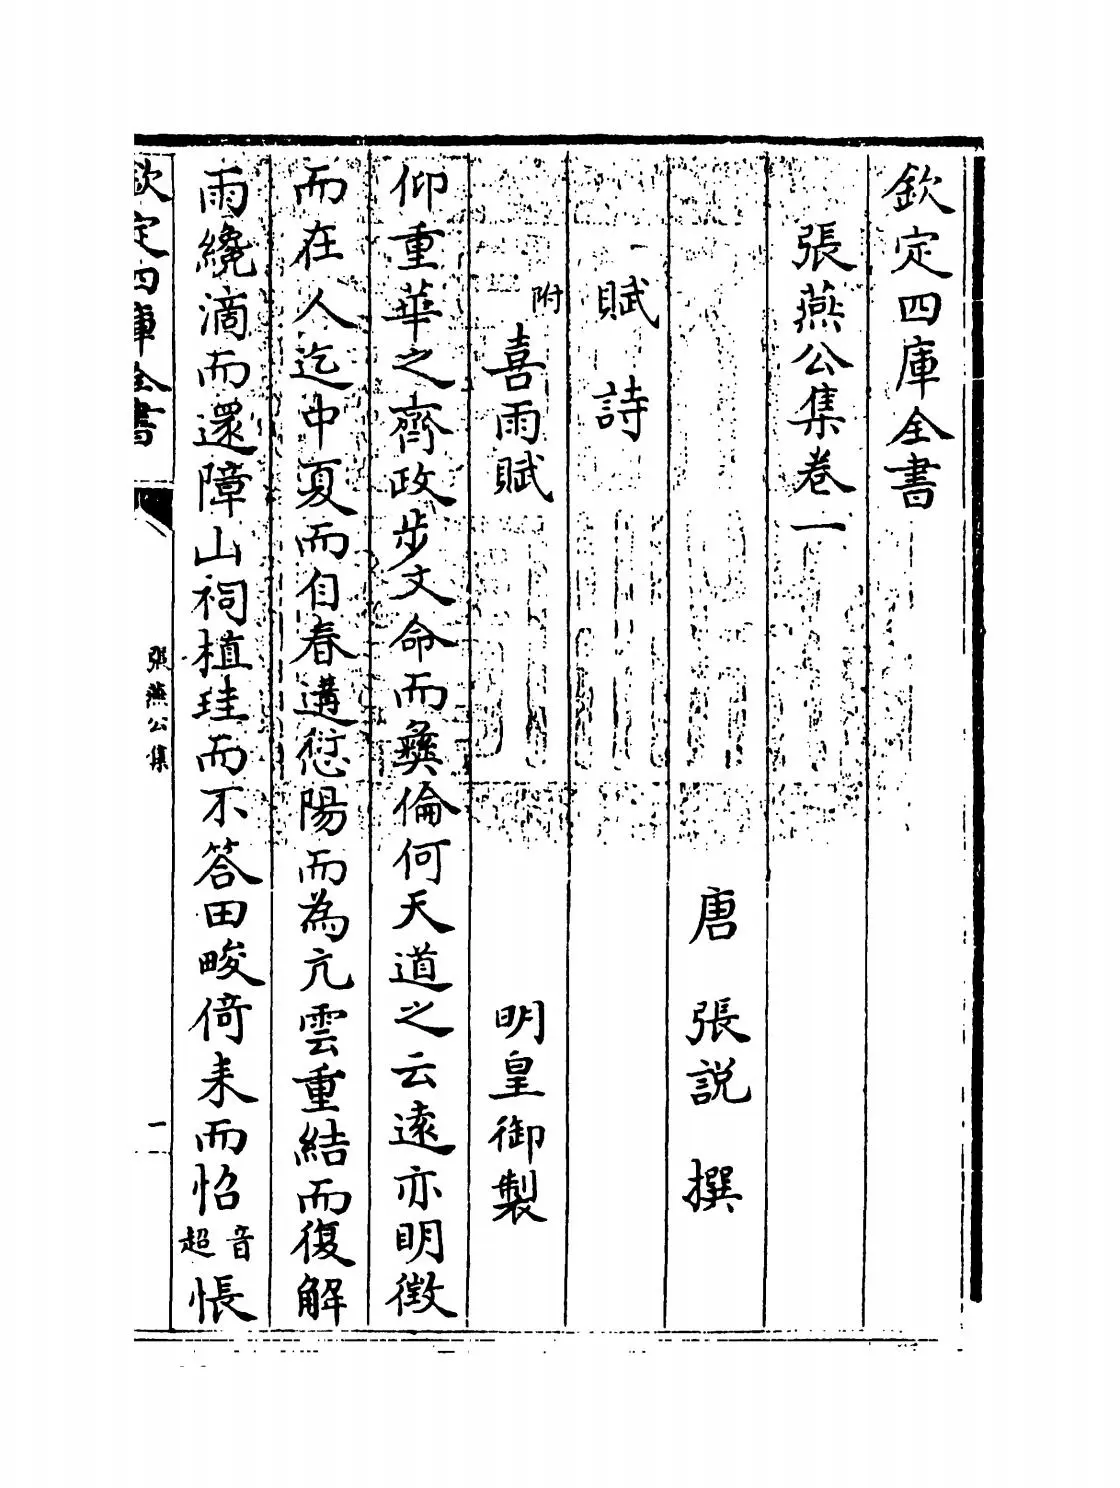 欽定四庫全書
張燕公集卷一
唐 張說 撰
賦 詩
附 喜雨賦 明皇御製
仰重華之齊政步文命而彝倫何天道之云遠亦明徵
而在人迄中夏而自春遘愆陽而為亢雲重結而復解
雨纔滴而還障山祠植珪而不答田畯倚耒而怊音超悵
欽定四庫全書
張燕公集
一